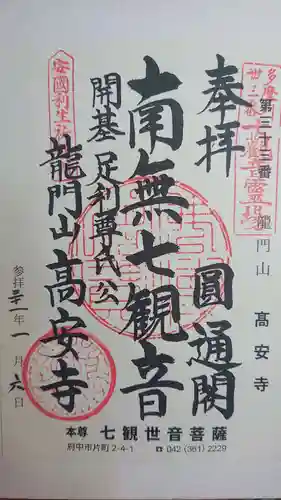 多摩
卅三番
観音靈場
第三十三番 龍門山 高安寺
奉拝 圓通閣
南無七観音
開基 足利尊氏公
安國利生
龍門山高安寺
参拝三十一年一月六日
本尊 七観世音菩薩
府中市片町2-4-1 ☎042(361)2229